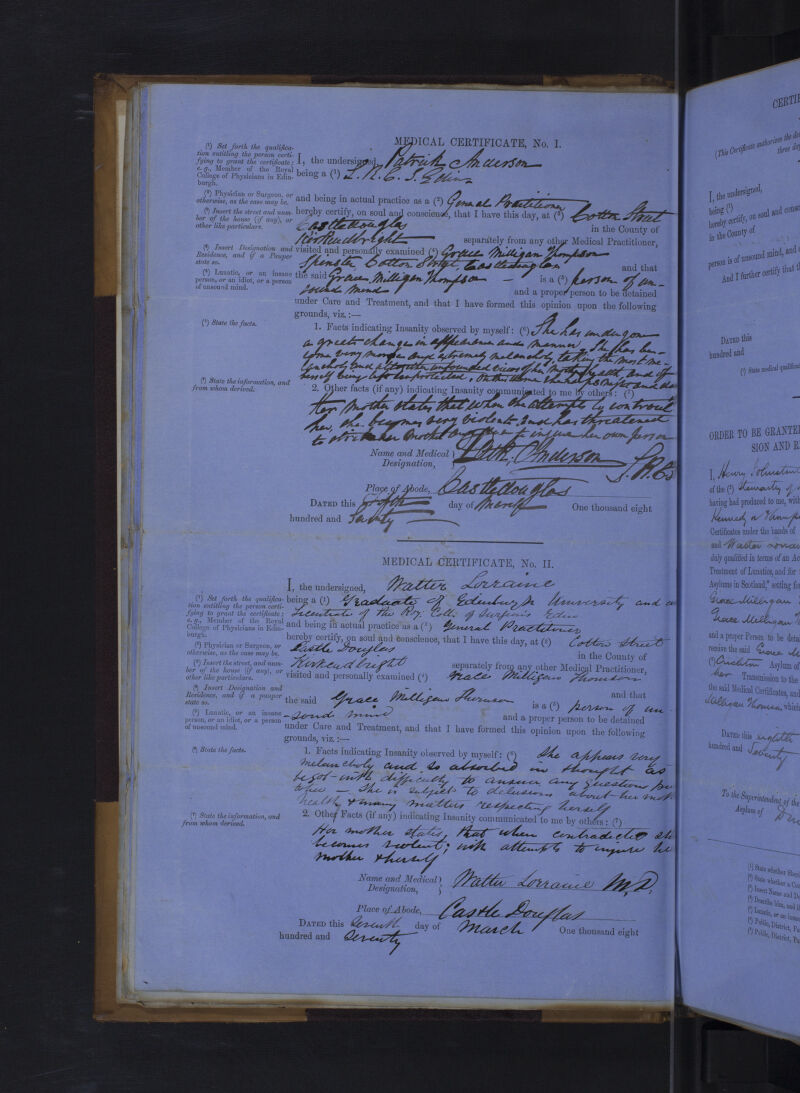 MEDICAL CERTIFICATE, No. I.
(¹) Set forth the qualifica-
tion entitling the person certi-
fying to grant the certificate;
e.g., Member of the Royal
College of Physicians in Edin-
burgh.
I, the undersigned, Patrick Anderson
being a (¹) L. R. C. S. Edinr
(²) Physician or Surgeon, or
otherwise, as the case may be.
and being in actual practice as a (²) General Practitioner
(³) Insert the street and num-
ber of the house (if any), or
other like particulars.
hereby certify, on soul and conscience, that I have this day, at (³) Cotton Street
Castledouglas in the County of
Kirkcudbright separately from any other Medical Practitioner,
(⁴) Insert Designation and
Residence, and if a Pauper
state so.
visited and personally examined (⁴) Grace Milligan Thompson
Spinster, Cotton Street, Castledouglas and that
(⁵) Lunatic, or an insane
person, or an idiot, or a person
of unsound mind.
the said Grace Milligan Thompson is a (⁵) person of un-
sound mind and a proper person to be detained
under Care and Treatment, and that I have formed this opinion upon the following
grounds, viz.:—
(⁶) State the facts.
1. Facts indicating Insanity observed by myself: (⁶) She has undergone
a great change in appearance and manner, She has be-
come very morose and extremely melancholy taking the most me-
lancholy and altogether unfounded views of her Mother's health and of
herself being left unprotected.
(⁷) State the information, and
from whom derived.
2. Other facts (if any) indicating Insanity communicated to me by others: (⁷)
Her Mother states that when she attempts to controul
her, she becomes very violent and has threatened
to strike her Mother and to injure her own person
Name and Medical
Designation,
Patk. Anderson L.R.C.S
Place of Abode, Castledouglas
DATED this day of March One thousand eight
hundred and Seventy
MEDICAL CERTIFICATE, No. II.
(¹) Set forth the qualifica-
tion entitling the person certi-
fying to grant the certificate;
e.g., Member of the Royal
College of Physicians in Edin-
burgh.
I, the undersigned, Walter Lorraine
being a (¹) Graduate of Edinburgh University and a
Licentiate of the Roy. Coll. of Surgeons Edinr
(²) Physician or Surgeon, or
otherwise, as the case may be.
and being in actual practice as a (²) General Practitioner
(³) Insert the street, and num-
ber of the house (if any), or
other like particulars.
hereby certify, on soul and conscience, that I have this day, at (³) Cotton Street
Castle Douglas in the County of
Kirkcudbright separately from any other Medical Practitioner,
(⁴) Insert Designation and
Residence, and if a pauper
state so.
visited and personally examined (⁴) Grace Milligan Thomson
and that
(⁵) Lunatic, or an insane
person, or an idiot, or a person
of unsound mind.
the said Grace Milligan Thomson is a (⁵) person of un-
-sound mind and a proper person to be detained
under Care and Treatment, and that I have formed this opinion upon the following
grounds, viz.:—
(⁶) State the facts.
1. Facts indicating Insanity observed by myself: (⁶) She appears very
melancholy and so absorbed in thought as
with difficulty to answer any questions
She is subject to delusions about her
health, & many matters respecting herself
(⁷) State the information, and
from whom derived.
2. Other Facts (if any) indicating Insanity communicated to me by others: (⁷)
Her mother states, that when contradicted she
becomes violent; with attempts to injure her
mother & herself
Name and Medical
Designation,
Walter Lorraine M.D.
Place of Abode, Castle Douglas
DATED this Seventh day of March One thousand eight
hundred and Seventy
(This Certificate authorizes the
three
I, the undersigned,
being (¹)
hereby certify, on soul and
in the County of
person is of unsound mind, and
And I further certify that
DATED this
hundred and
ORDER TO BE GRANTED
SION AND
I, Henry
of the (²) Stewartry of
having had produced to me, with
Certificates under the hands of
and Walter Lorraine
duly qualified in terms of an Ac
Treatment of Lunatics, and for
Asylums in Scotland," setting
Grace Milligan
Grace Milligan
and a proper Person to be
receive the said Grace
Crichton Asylum of
her Transmission to the
the said Medical Certificates, and
Milligan Thomson which
DATED this eighth
hundred and Seventy
To the Superintendent of the
Asylum of